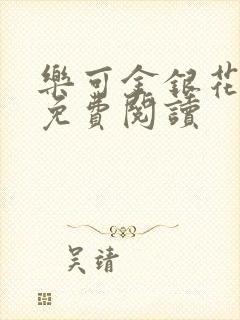 樂可金銀花
免費閱讀
吴靖